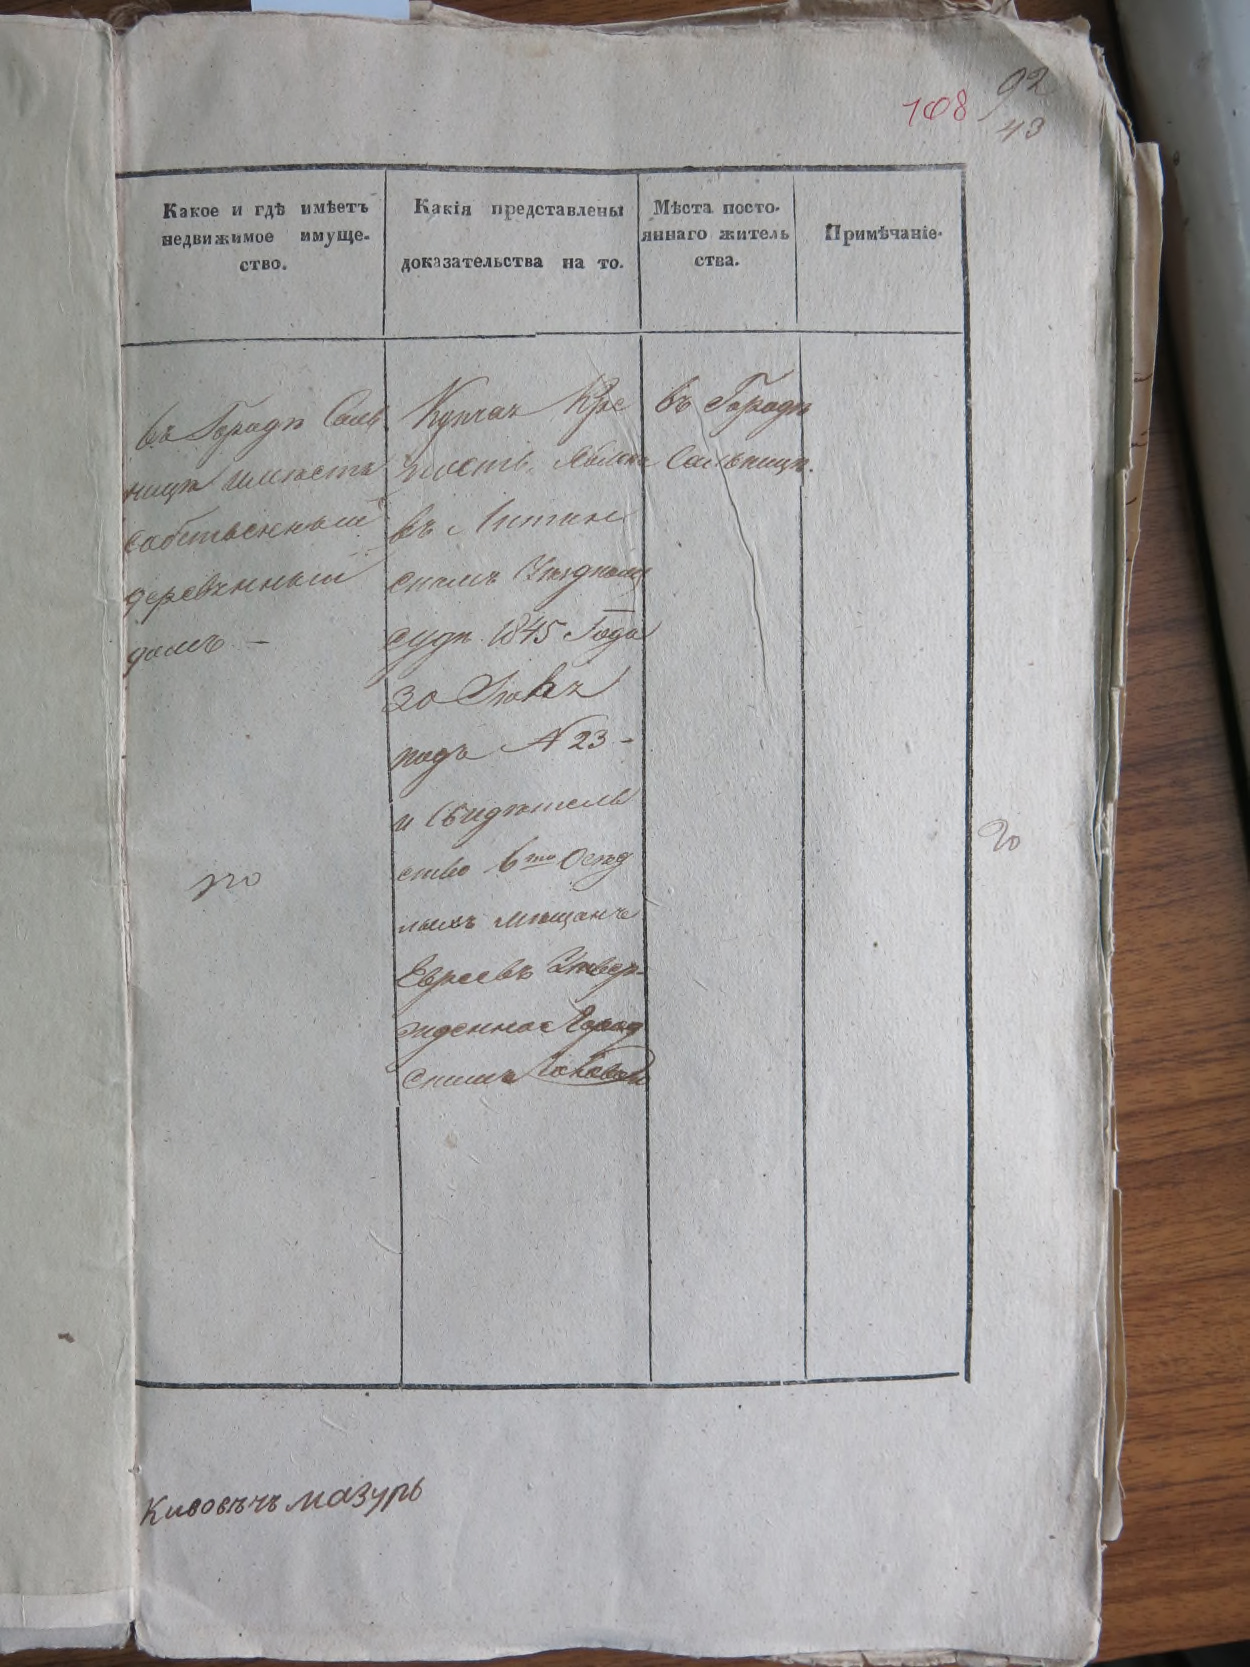 108
92
43
Какое и гдѣ имѣетъ
недвижимое имуще-
ство.
Какія представлены
доказательства на то.
Мѣста посто-
яннаго житель
ства.
Примѣчаніе.
въ Городѣ Саль
ницѣ имѣетъ
собственный
деревянный
домъ —
Купчая Крѣ
пость
въ Литин
скомъ Уѣздномъ
судѣ 1845 Года
30
подъ N 23 -
и Свидѣтель
ство 6ти Осѣд
лыхъ мѣщанъ
Евреевъ Утвер-
жденное
скимъ
въ Городѣ
Сальницѣ.
Мазуръ